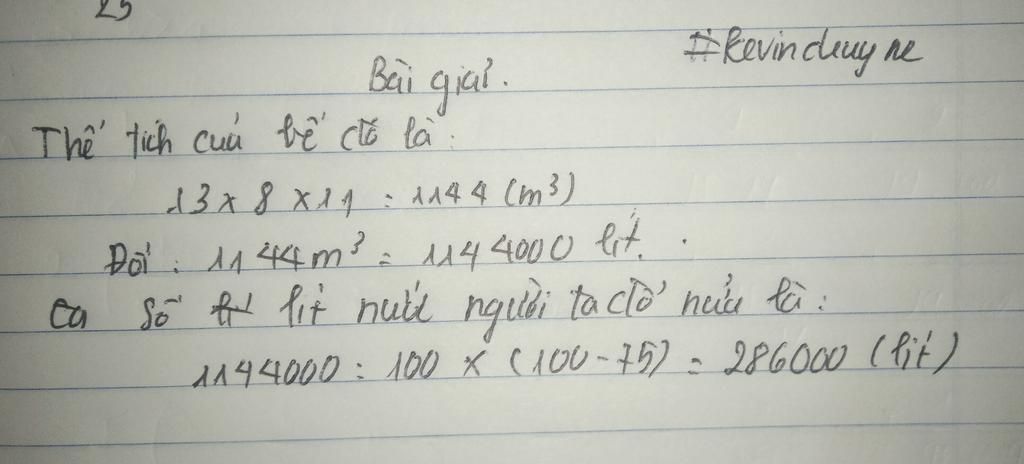 25
#Kevinduy ne
Bài giải.
Thể tích của bể đó là:
13 x 8 x 11 = 1144 (m³)
Đổi: 1144m³ = 1144000 lít.
Số lít nước người ta đổ nửa là:
1144000 : 100 x (100-75) = 286000 (lít)